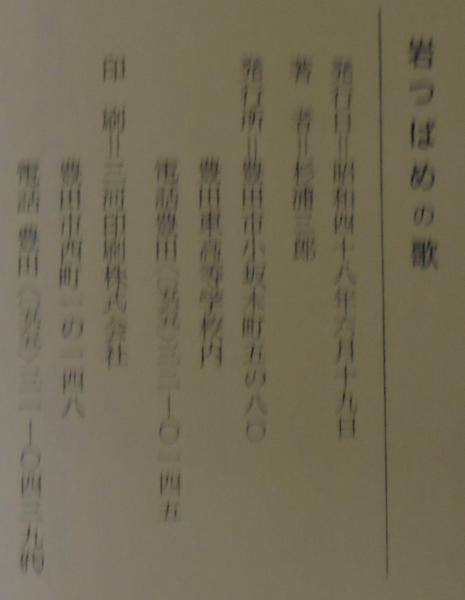 岩つばめの歌
発行日＝昭和四十八年六月十九日
著　者＝杉浦三郎
発行所＝豊田市小坂本町五の八〇
豊田東高等学校内
電話豊田〈五六五〉三二一〇一四五
印　刷＝三河印刷株式会社
豊田市西町一の一四八
電話 豊田